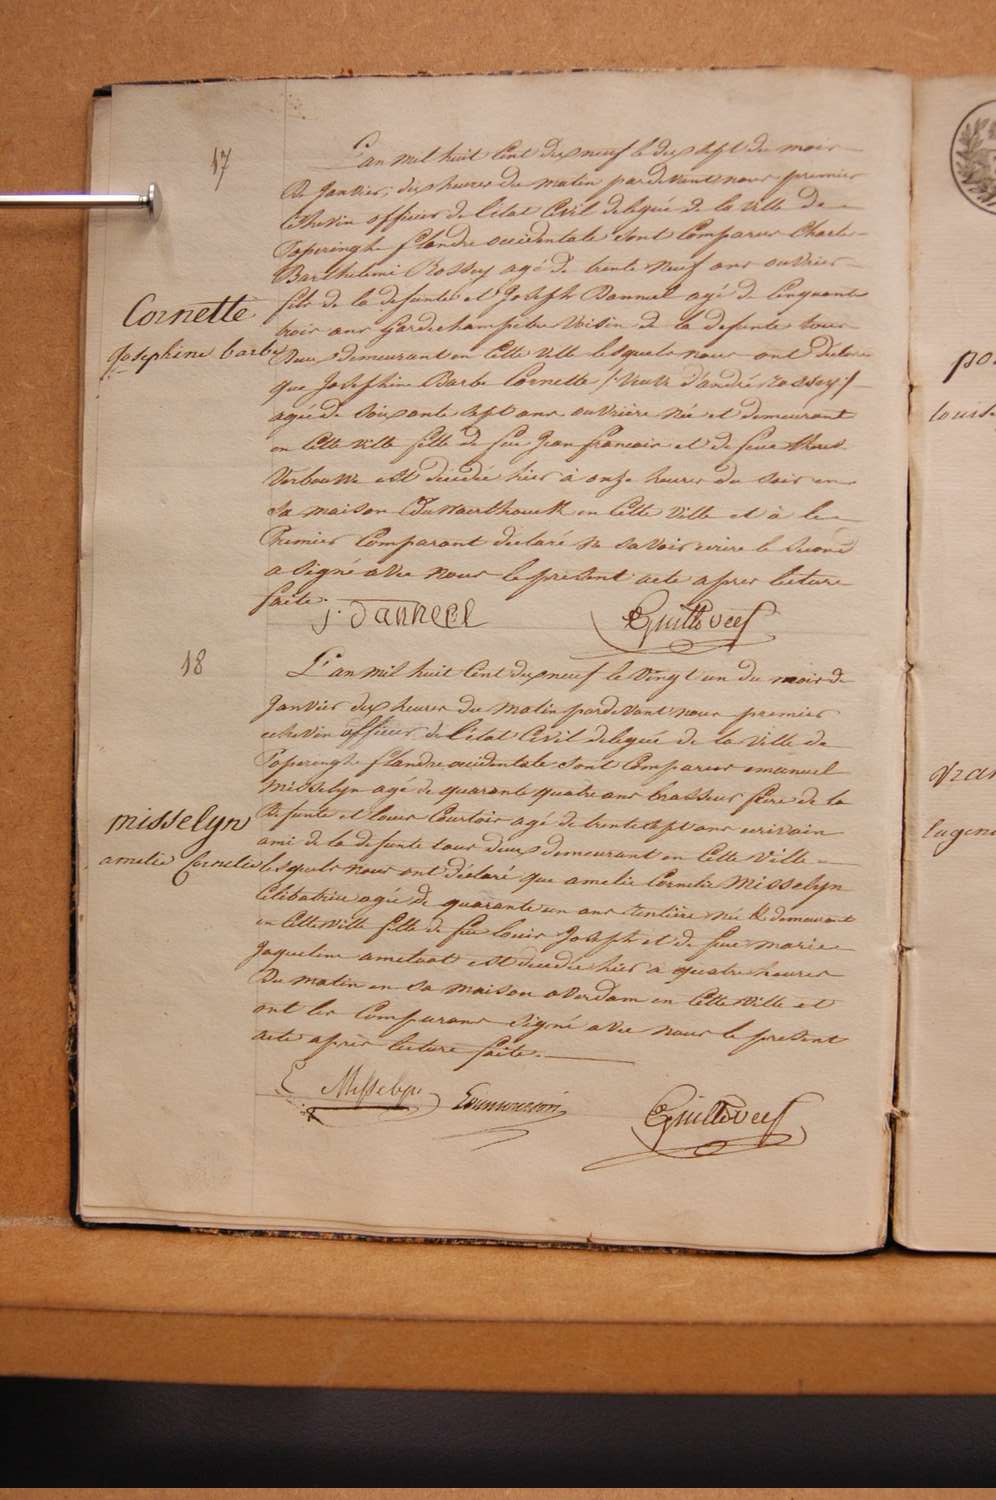 17
L'an mil huit cent dix neuf le dix sept du mois
de Janvier, dix heures du matin pardevant nous premier
Echevin officier de l'état Civil delegué de la ville de
Poperinghe flandre occidentale sont Comparus Charles
Barthelemi Rossey agé de trente neuf ans ouvrier
fils de la defunte et Joseph Danneel agé de Cinquante
trois ans Garde champetre Voisin de la defunte tous
Cornette
Josephine barbe
deux demeurant en Cette Ville lesquels nous ont déclaré
que Josephine Barbe Cornette /: Veuve d'andré Rossey :/
agée de soixante sept ans ouvrière née et demeurant
en Cette Ville fille de feu Jean francois et de feue
est décédée hier à onze heures du soir en
sa maison en Cette Ville et à le
Premier Comparant déclaré ne savoir ecrire le second
a signé avec nous le present acte apres lecture
faite.
J. Danneel
18
L'an mil huit Cent dix neuf le Vingt un du mois de
Janvier dix heures du matin pardevant nous premier
echevin officier de l'état Civil delegué de la Ville de
Poperinghe flandre occidentale sont Comparus emanuel
Misselyn agé de quarante quatre ans brasseur frere de la
defunte et louis Courtois agé de trente sept ans ecrivain
misselyn
amelie Cornelie
ami de la defunte tous deux demeurant en Cette Ville
lesquels nous ont déclaré que amelie Cornelie Misselyn
Celibatrice agée de quarante un ans Rentière née & demeurant
en Cette Ville fille de feu louis Joseph et de feue marie
Jaqueline est décédée hier a quatre heures
du matin en sa maison en Cette Ville et
ont les Comparans signé avec nous le present
acte après lecture faite.
E Misselyn